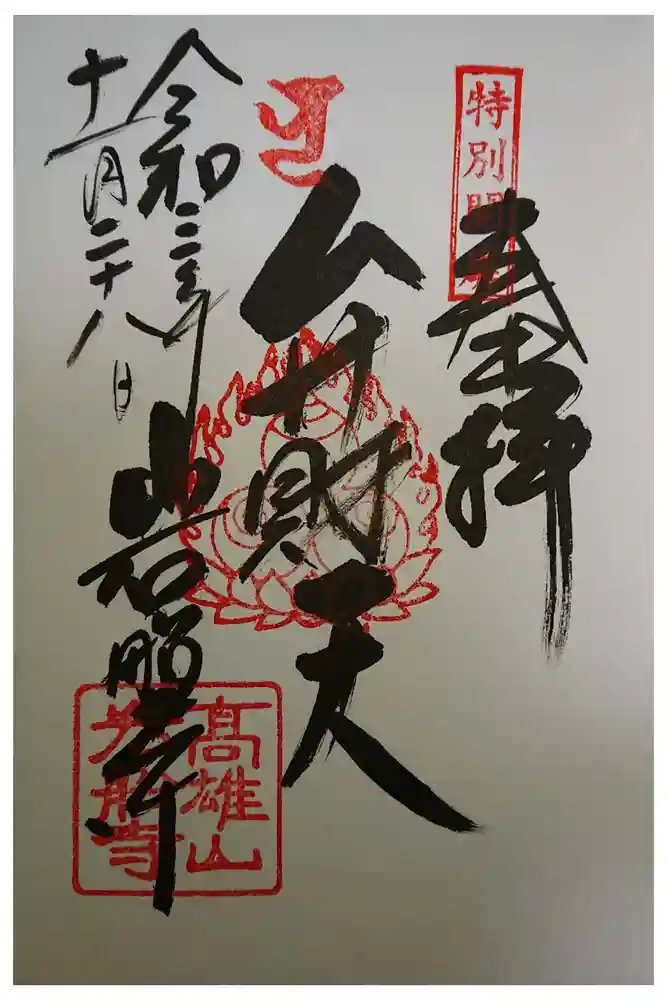 特別開帳
奉拝
弁財天
令和三年
十一月二十八日
岩船寺
高雄山
岩船寺